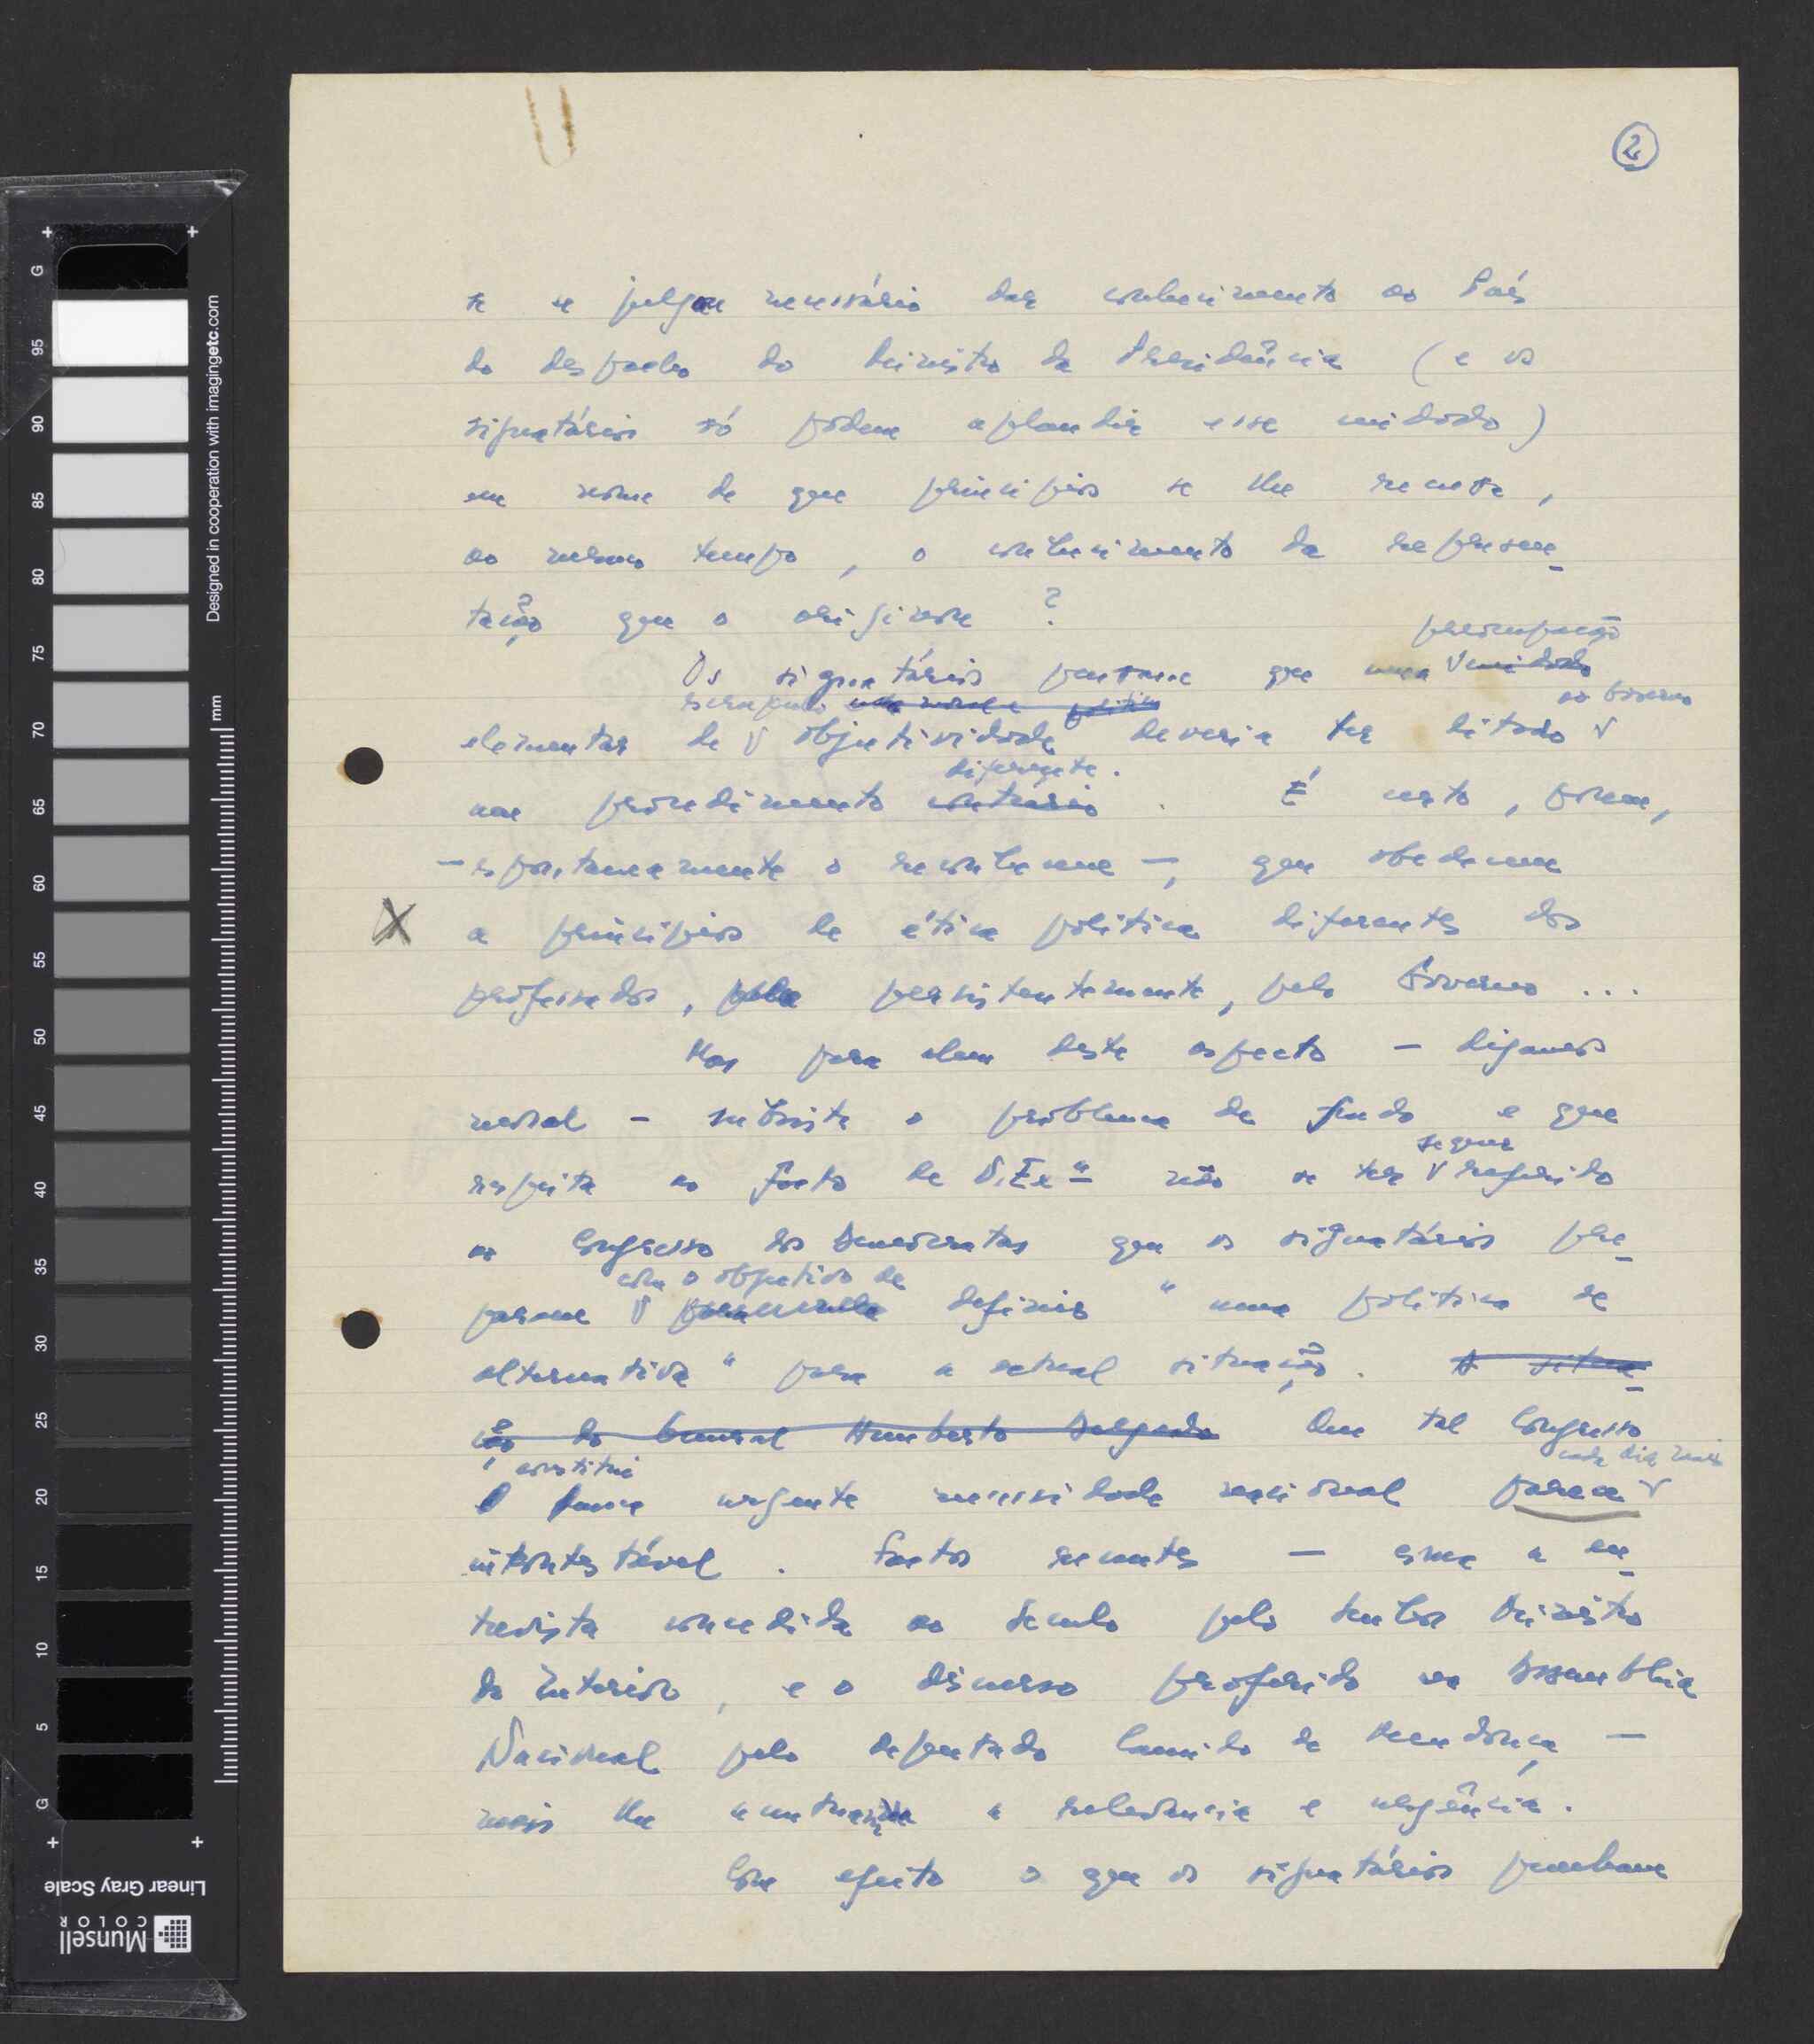 2
se se julgou necessário dar conhecimento ao País
do despacho do Ministro da Presidência (e os
signatários só podem aplaudir esse cuidado)
em nome de que princípios se lhe recusa,
ao mesmo tempo, o conhecimento da represen-
tação que o originou?
preocupação
Os signatários pensam que uma cuidado
escrúpulo política ao Governo
elementar de objectividade deveria ter ditado
diferente.
um procedimento contrário. É certo, porém,
- espontaneamente o reconhecem -, que obedecem
X a princípios de ética política diferentes dos
professados, pelo persistentemente, pelo Governo ...
Mas para alem deste aspecto - digamos
moral - subsiste o problema de fundo e que
sequer
respeita ao facto de V. Exª não se ter referido
ao Congresso dos Democratas que os signatários pre-
com o objetivo de
param definir "uma política de
alternativa" para a actual situação. A situa-
ção do General Humberto Delgado Que tal Congresso
constitui cada dia mais
uma urgente necessidade nacional parece
incontestável. Factos recentes - como a en-
trevista concedida ao Seculo pelo senhor Ministro
do Interior, e o discurso proferido na Assembleia
Nacional pelo deputado Camilo de Mendonça -
mais lhe acentuam a relevancia e urgência.
Com efeito o que os signatários
Designed in cooperation with imagingetc.com
mm
G
95
90
85
80
75
70
65
60
55
50
45
40
35
30
25
20
15
10
5
G
Linear Gray Scale
Munsell
COLOR